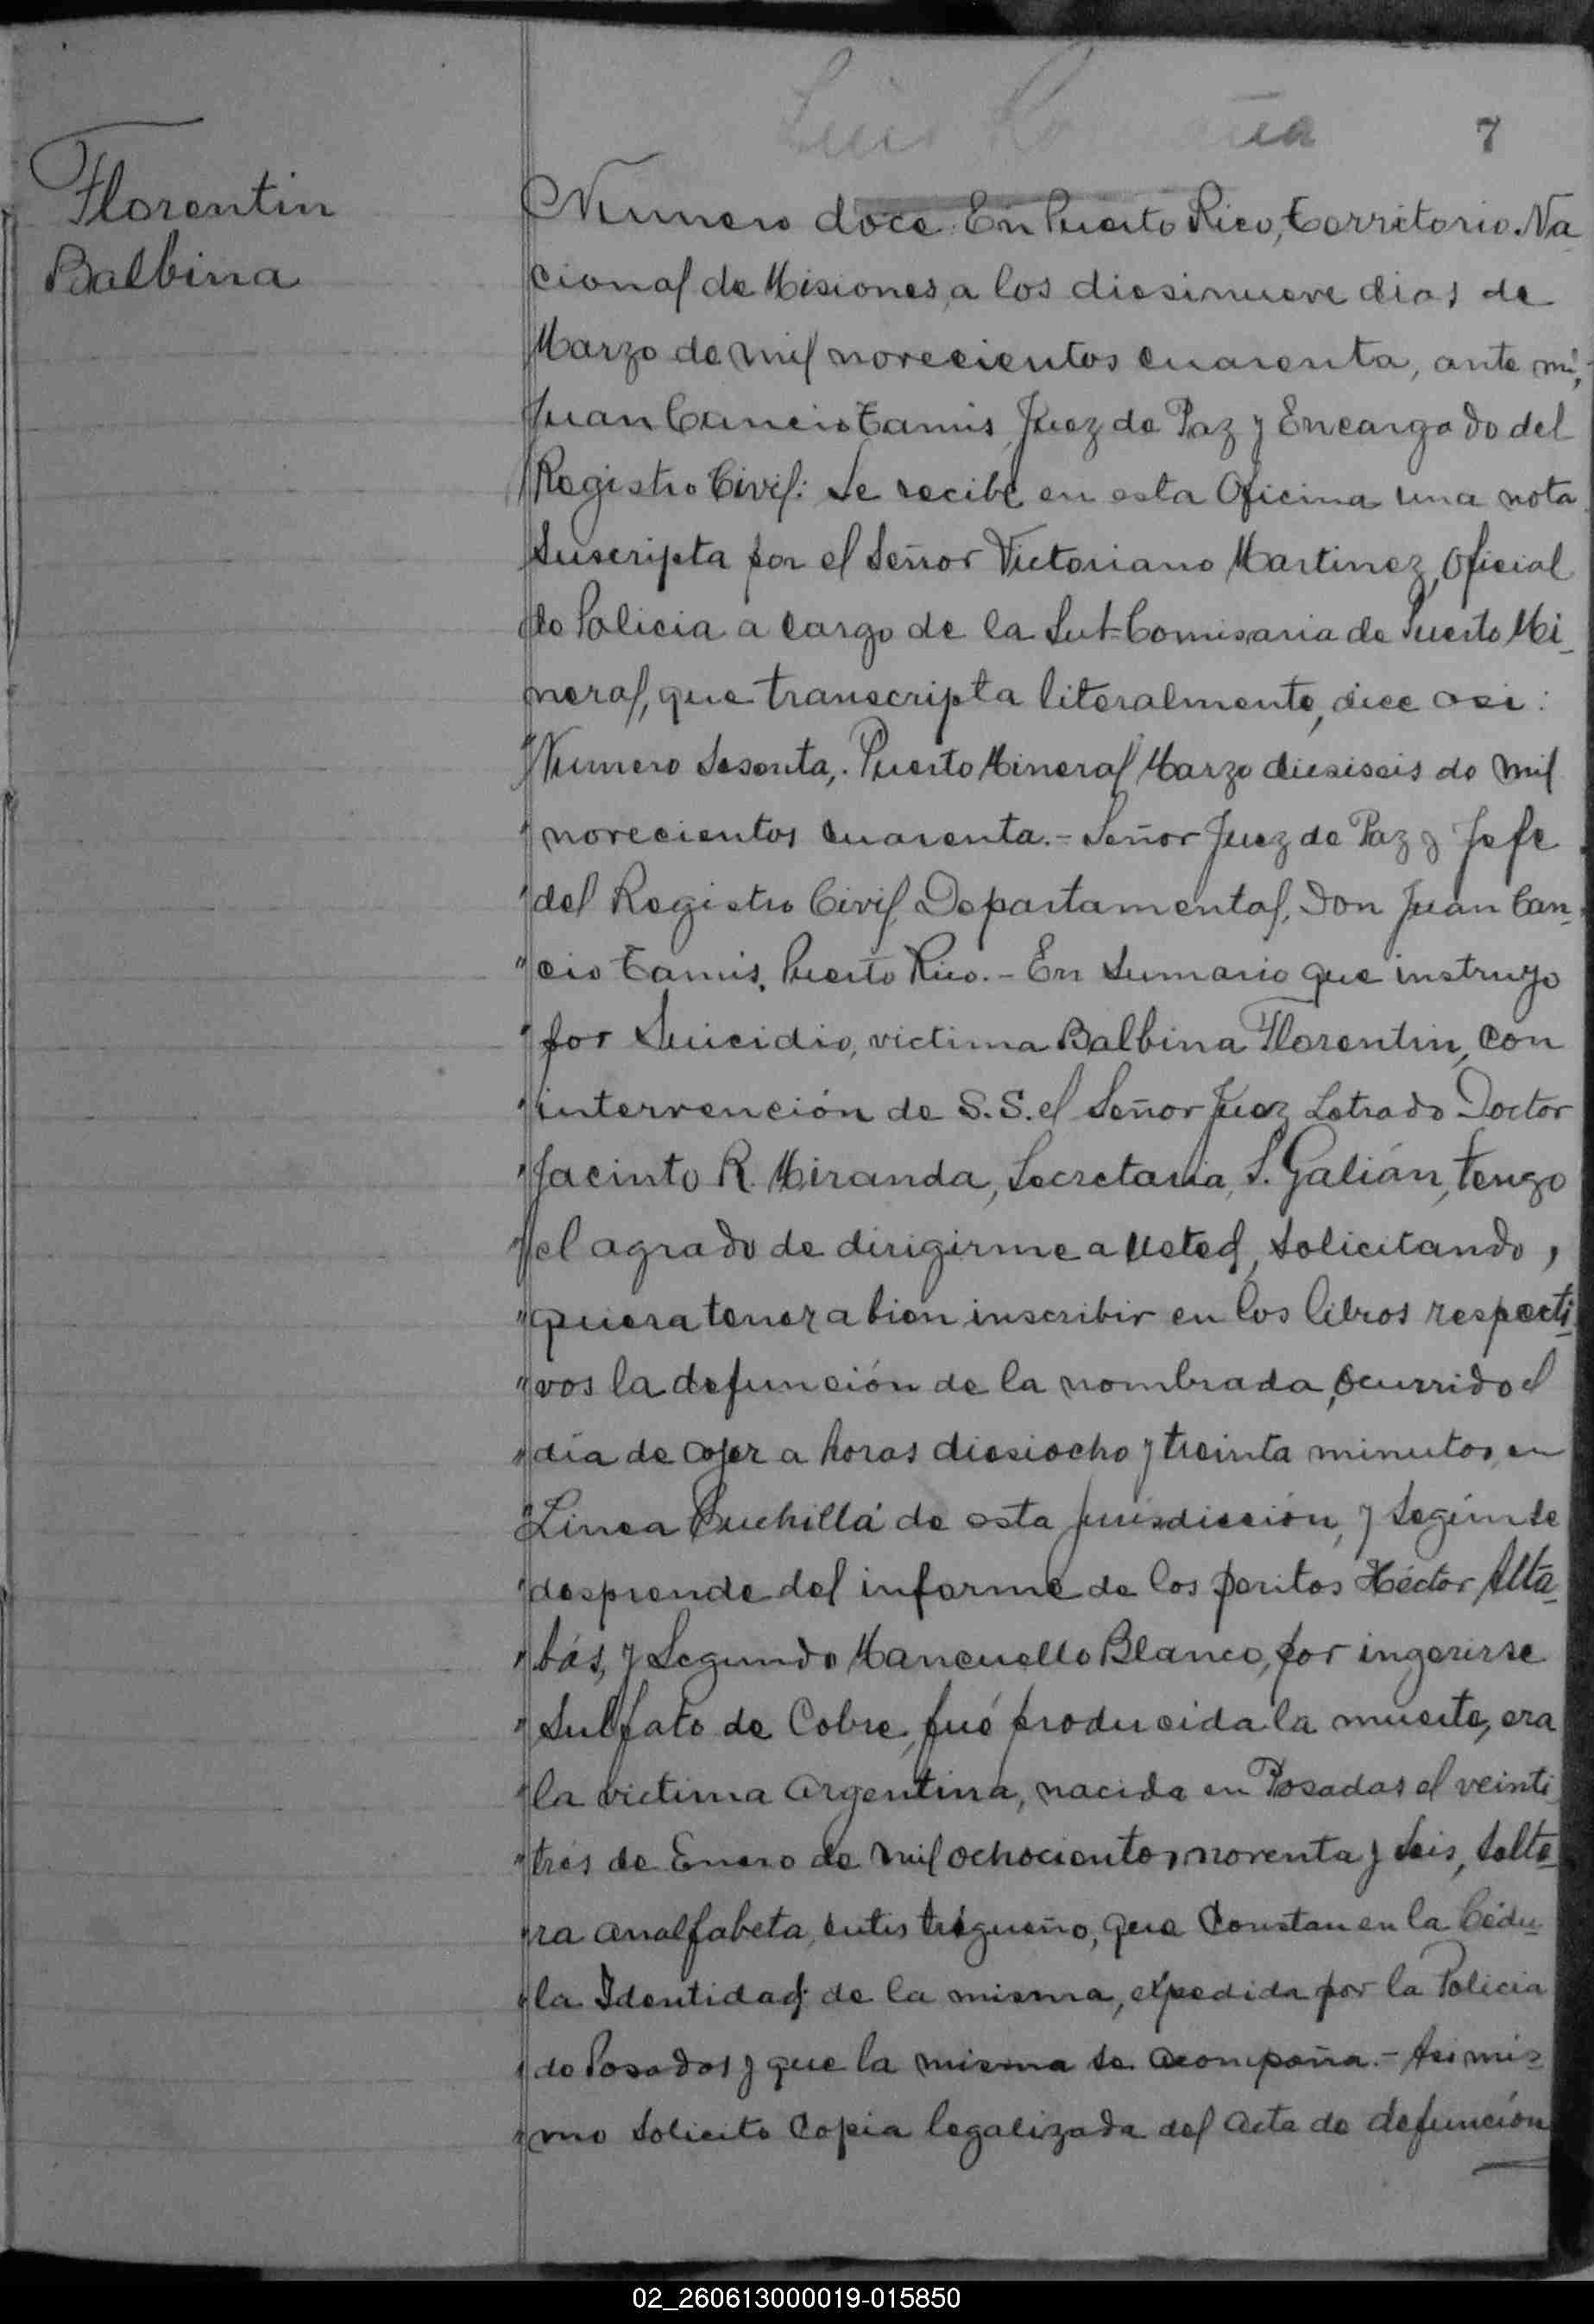 7
Florentin
Balbina
Numero doce. En Puerto Rico, Territorio Na
cional de Misiones, a los diesinueve dias de
Marzo de mil novecientos cuarenta, ante mi,
Juan Cancio Tamis, Juez de Paz y Encargado del
Registro Civil: Se recibe en esta Oficina una nota
suscripta por el Señor Victoriano Martinez, Oficial
de Policia a cargo de la Sub-Comisaria de Puerto Mi_
neral, que transcripta literalmente, dice asi:
"Numero Sesenta,. Puerto Mineral Marzo diesiseis de mil
" novecientos cuarenta.- Señor Juez de Paz y Jefe
" del Registro Civil, Departamental, Don Juan Can_
" cio Tamis, Puerto Rico.- En Sumario que instruyo
" por Suicidio, victima Balbina Florentin, con
" intervención de S.S. el Señor Juez Letrado Doctor
" Jacinto R. Miranda, Secretaria, S. Galián, tengo
" el agrado de dirigirme a Usted, solicitando,
" quiera tener a bien inscribir en los libros respecti_
" vos la defunción de la nombrada, ocurrido el
" día de ayer a horas diesiocho y treinta minutos, en
" Linea Cuchilla de esta jurisdicción, y según se
" desprende del informe de los peritos Héctor Alta_
" bás, y Segundo Mancuello Blanco, por ingerirse
" Sulfato de Cobre, fué producida la muerte, era
" la victima Argentina, nacida en Posadas el veinti
" trés de Enero de mil ochocientos noventa y seis, solte_
" ra analfabeta, cutis trigueño, que constan en la Cédu_
" la Identidad de la misma, expedida por la Policia
" de Posadas y que la misma se acompaña.- Asi mis_
" mo solicito copia legalizada del acta de defunción
02_260613000019-015850